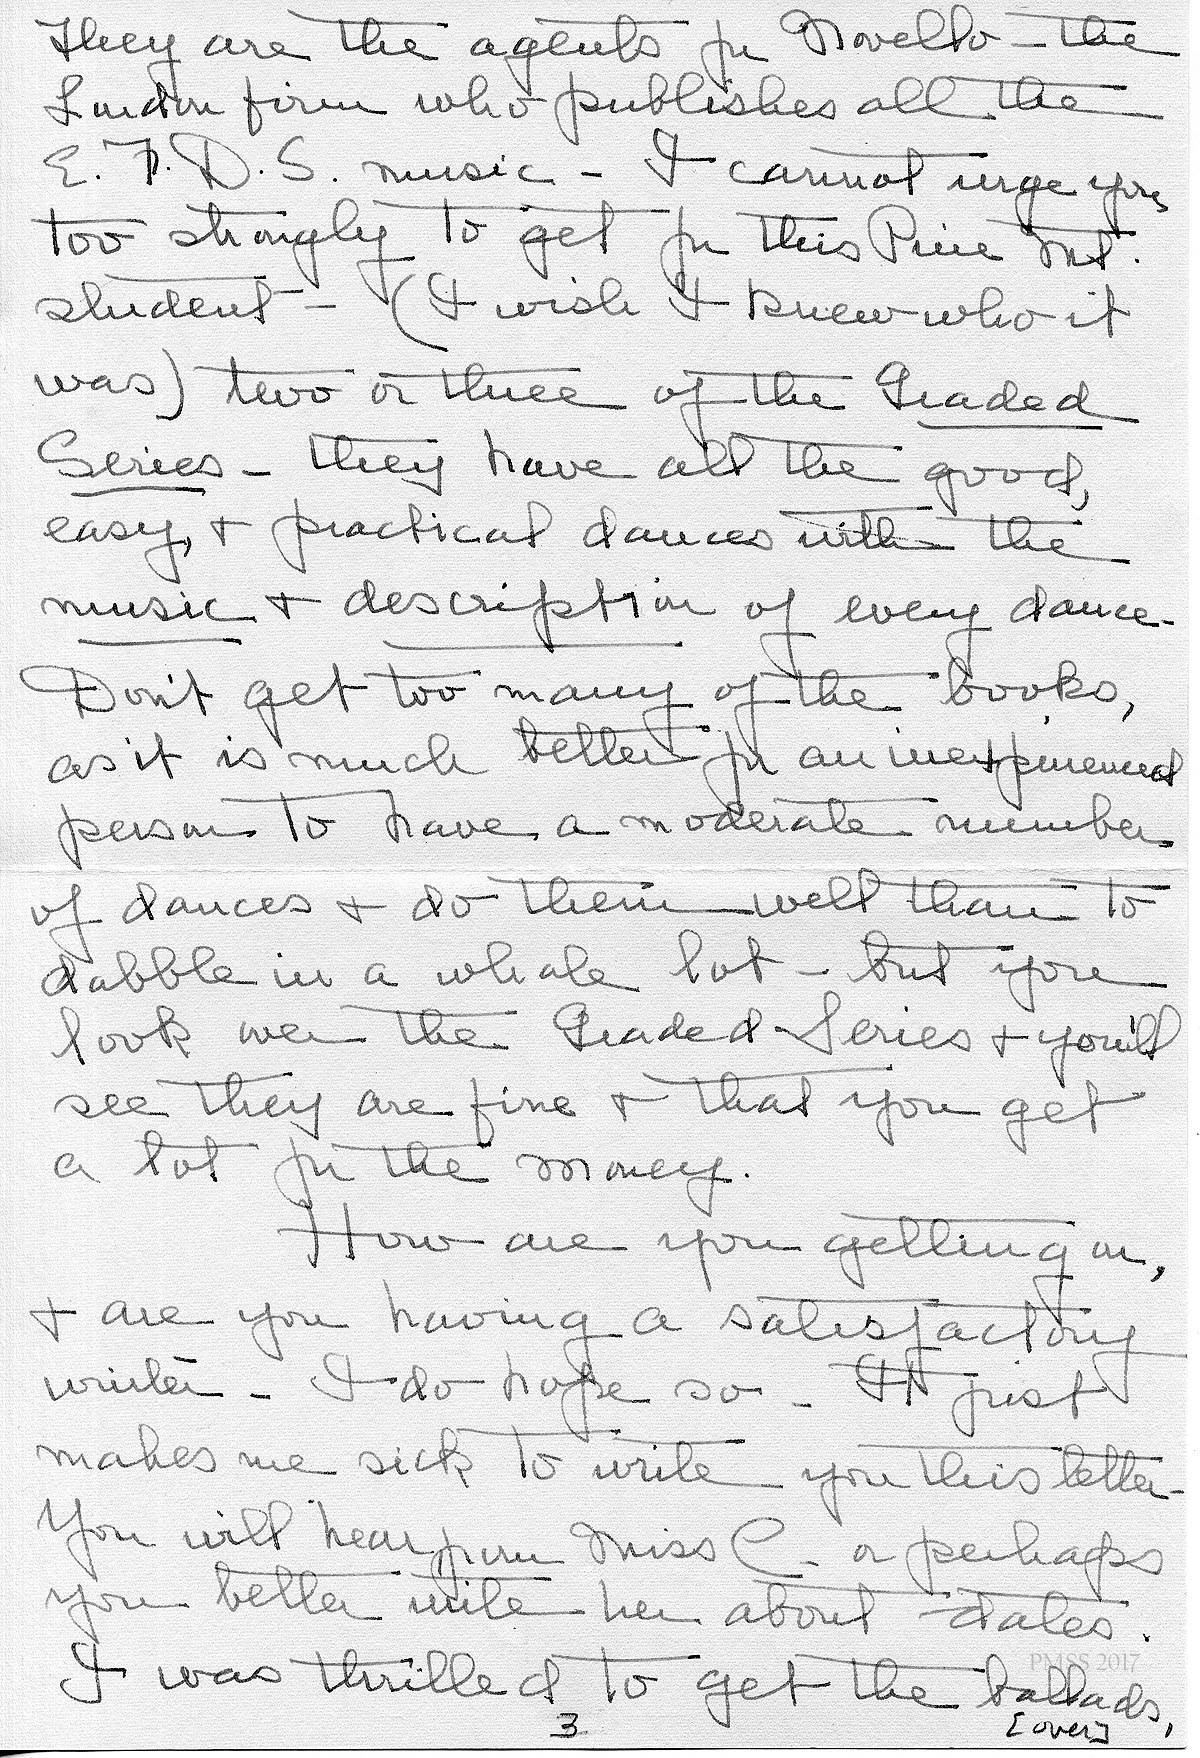 They are the agents for Novello - the
London firm who publishes all the
E. F. D. S. music - I cannot urge you
too strongly to get for this Pine Mt.
student - (I wish I knew who it
was) two or three of the Graded
Series - they have all the good,
easy, + practical dances with the
music + description of every dance -
Don't get too many of the books,
as it is much better for an inexperienced
person to have a moderate number
of dances + do them well than to
dabble in a whole lot - but you
look over the Graded Series + you'll
see they are fine + that you get
a lot for the money.
How are you getting on,
+ are you having a satisfactory
winter - I do hope so - It just
makes me sick to write you this letter -
You will hear from Miss C - or perhaps
you better write her about dates.
I was thrilled to get the ballads,
PMSS 2017
3
[over]